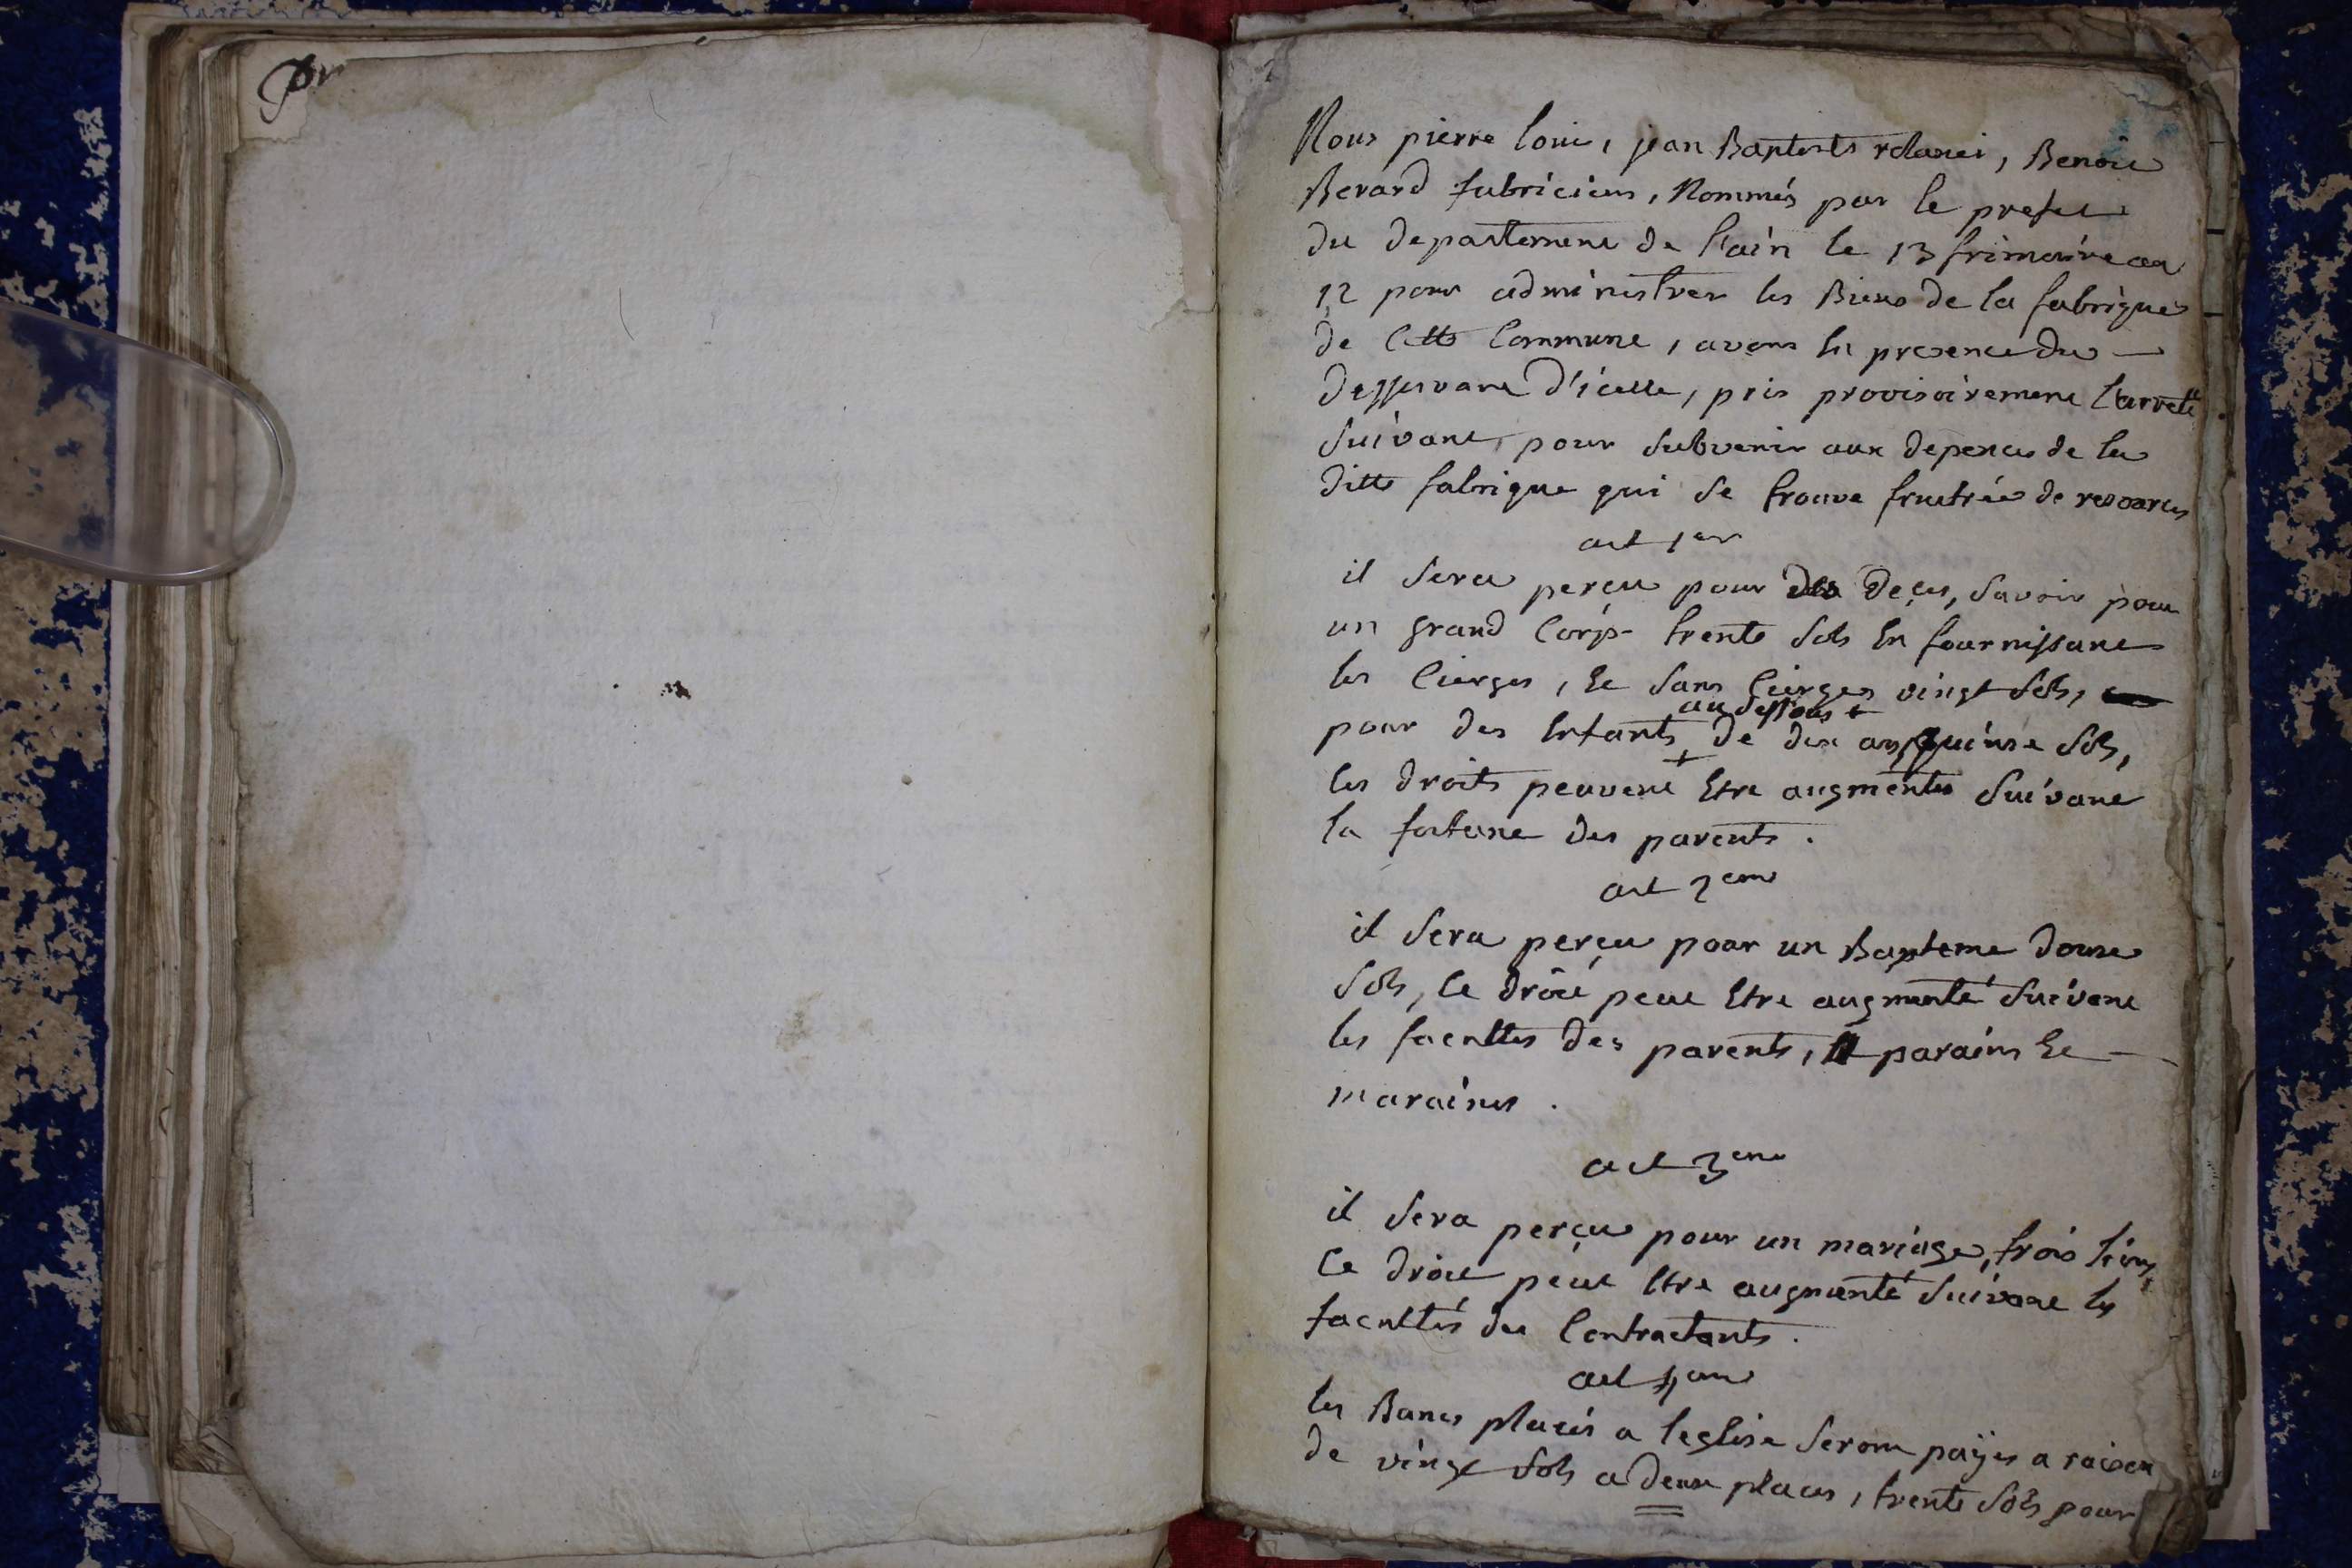 Nous pierre louis, jean Baptiste, Benoit
Berard fabriciens, Nommés par le prefet
du departement de l'ain le 13 frimaire an
12 pour administrer les Biens de la fabrique
de Cette Commune, avons En presence du
desservant d'icelle, pris provisoirement l'arreté
Suivant, pour Subvenir aux depences de la
ditte fabrique qui Se trouve frustrée de resources
art 1er
il Sera perçu pour des deçes, Savoir pour
un grand Corps trente Sols En fournissant
les Cierges, Et Sans Cierges vingt Sols,
au dessous +
pour des Enfants + de dix ans quinse Sols,
les droits peuvent Etre augmentes Suivant
la fortune des parents.
art 2eme
il Sera perçu pour un Bapteme douse
Sols, le droit peut Etre augmenté Suivant
les facultes des parents, parains Et
maraines.
art 3eme
il Sera perçu pour un mariage, trois
Ce droit peut Etre augmenté Suivant les
facultés des Contractants.
art 4eme
les Bancs placés a l'eglise Seront payés a raison
de vingt Sols a deux places, trente Sols pour